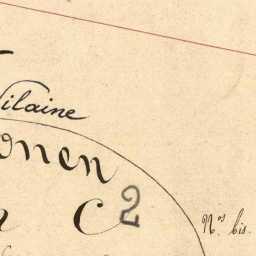 ilaine
onen
C 2
Nos bis.